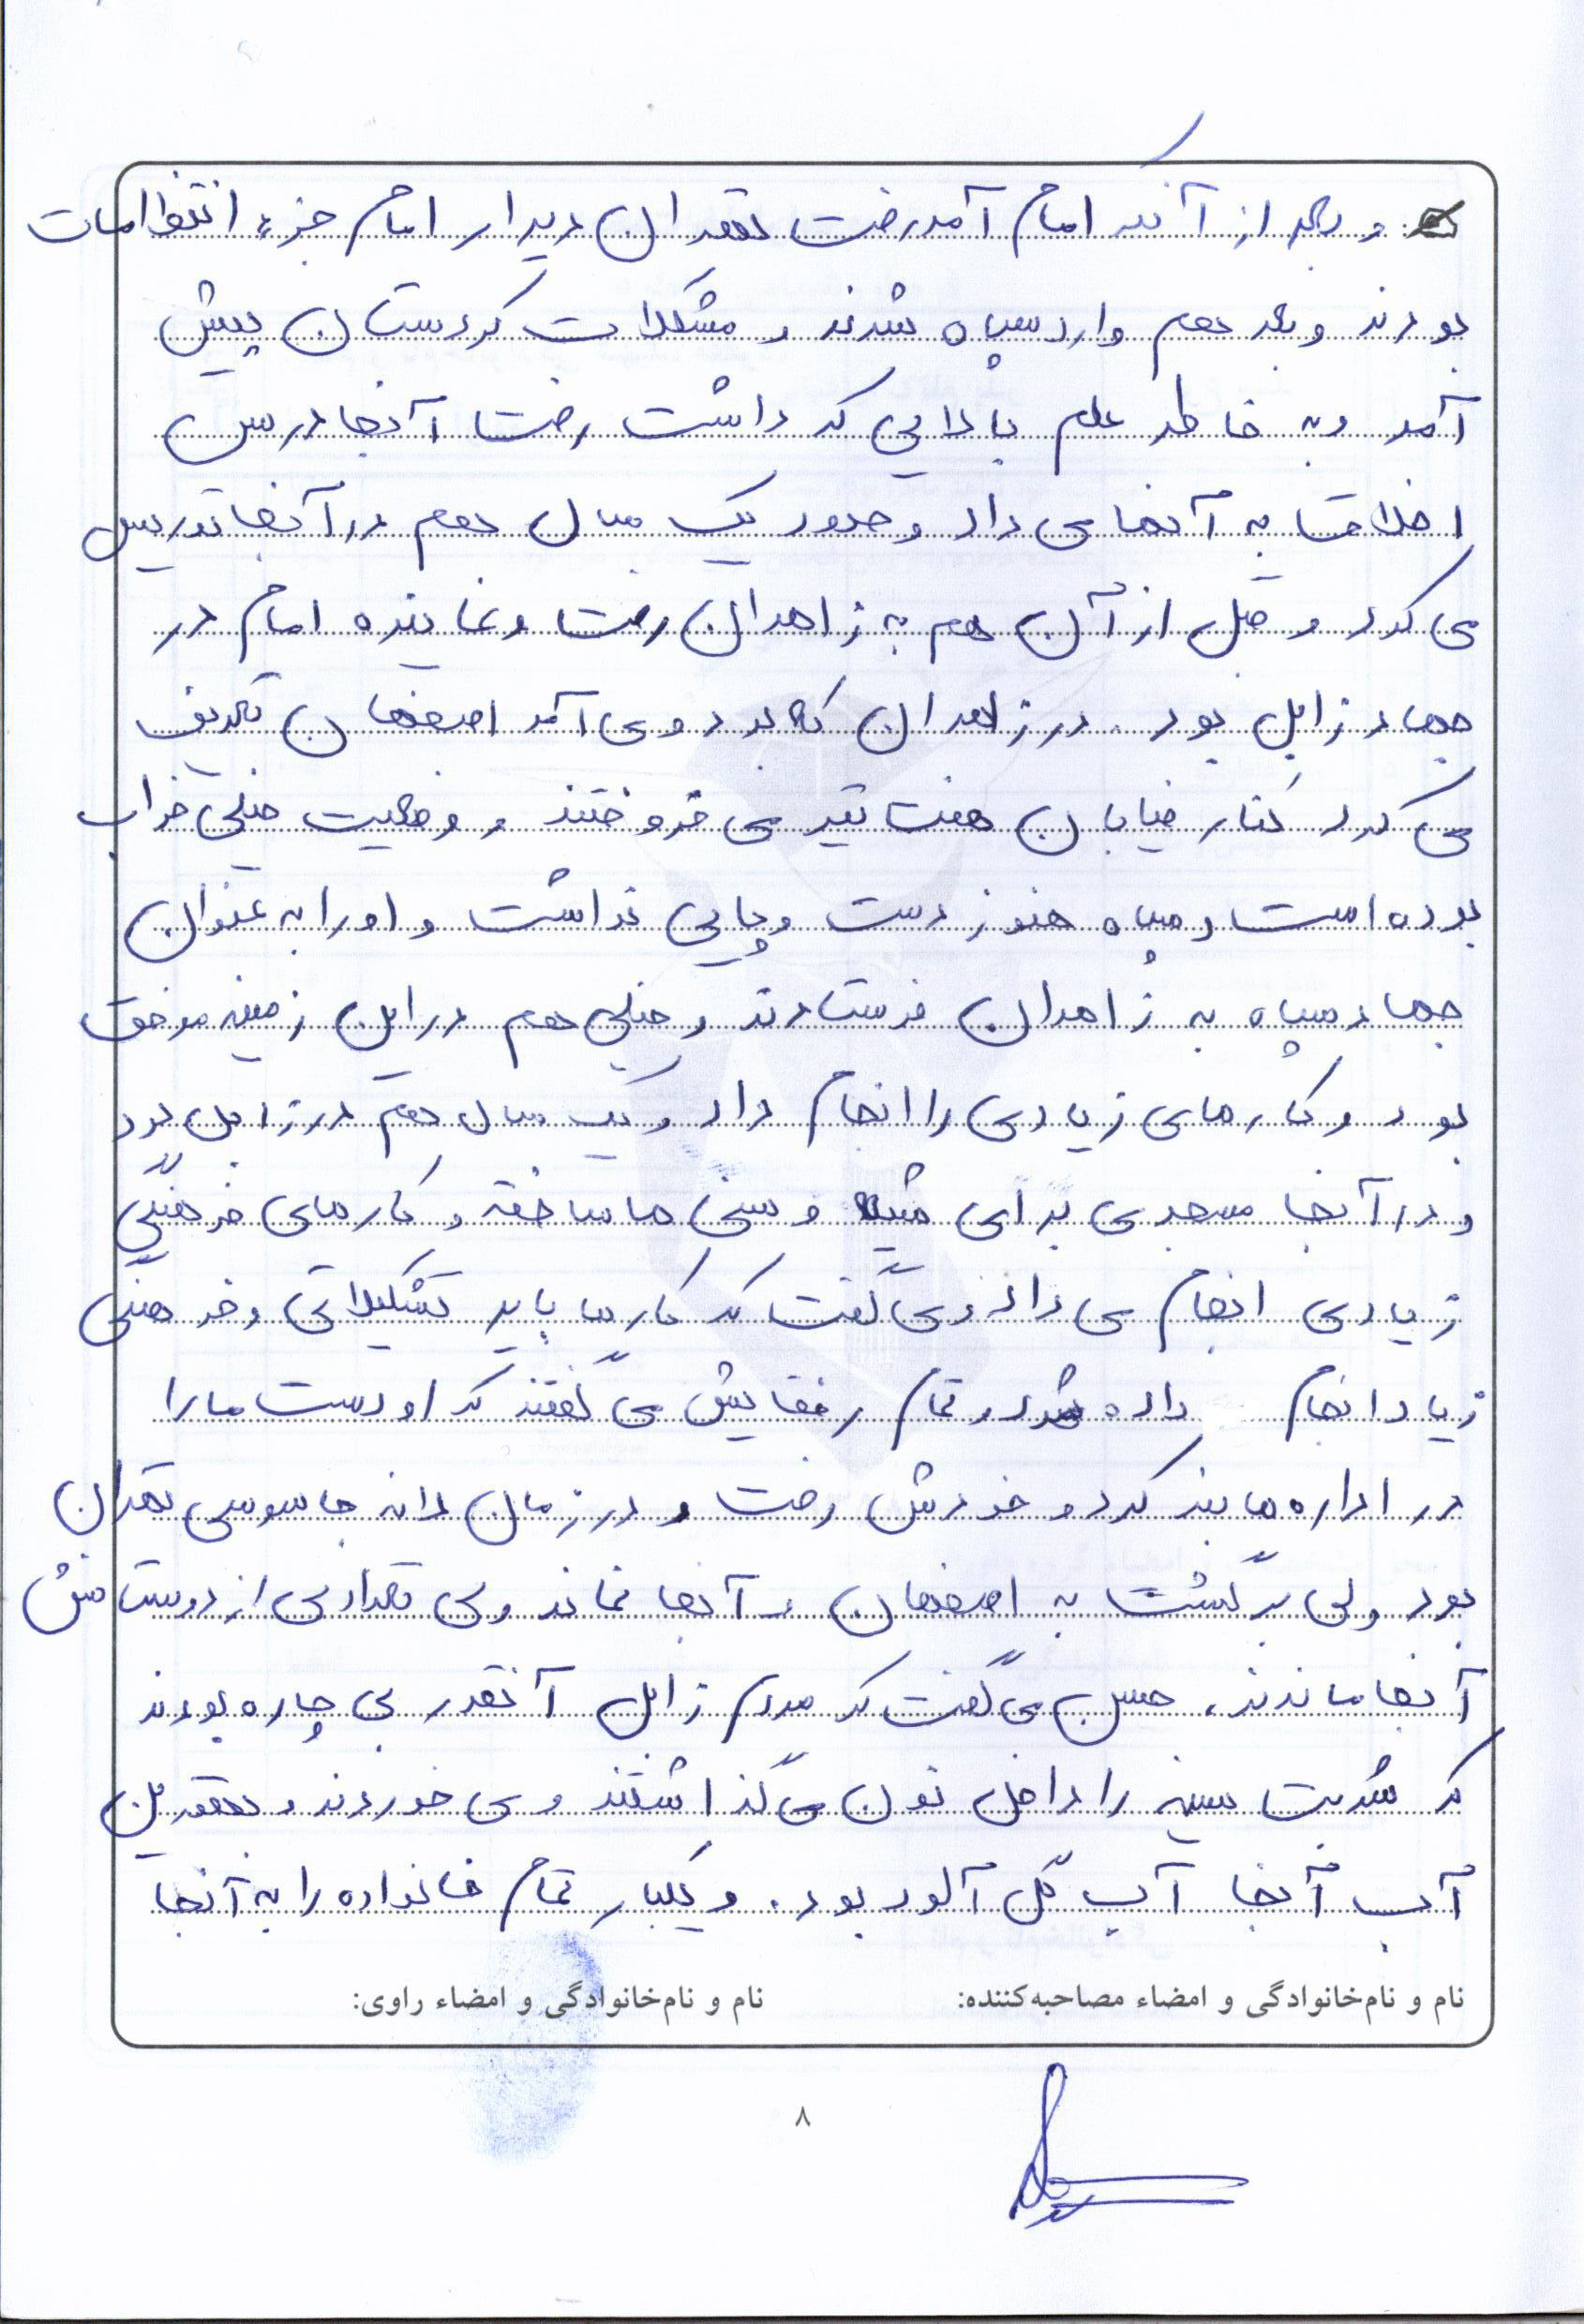 و بعد از آنکه امام آمد رفت تهران دیدار امام جزء انتظامات
بودند و بعد هم وارد سپاه شدند و مشکلات کردستان پیش
آمد و به خاطر علم بالایی که داشت رفت آنجا درس
اخلاق به آنها می داد و حدود یک سال هم در آنجا تدریس
می کرد و قبل از آن هم به زاهدان رفت و نماینده امام در
جهاد زابل بود. در زاهدان که بود و می آمد اصفهان تعریف
می کرد کنار خیابان هفت تیر می فروختند و وضعیت خیلی خراب
بوده است و سپاه هنوز دست و پایی نداشت و او را به عنوان
جهاد سپاه به زاهدان فرستادند و خیلی هم در این زمینه موفق
بود و کارهای زیادی را انجام داد و یک سال هم در زابل بود
و در آنجا مسجدی برای شیعه و سنی ها ساخته و کارهای فرهنگی
زیادی انجام می داد و می گفت که کارها باید تشکیلاتی و فرهنگی
زیاد انجام داده شود و تمام رفقایش می گفتند که او دست ما را
در اداره ها بند کرد و خودش رفت و در زمان لانه جاسوسی تهران
بود ولی برگشت به اصفهان و آنجا نماند ولی تعدادی از دوستانش
آنجا ماندند، حسن می گفت که مردم زابل آنقدر بی چاره بودند
که شربت سینه را داخل نون می گذاشتند و می خوردند و بهترین
آب آنجا آب گل آلود بود. و یکبار تمام خانواده را به آنجا
نام و نام‌خانوادگی و امضاء مصاحبه‌کننده: نام و نام‌خانوادگی و امضاء راوی:
۸